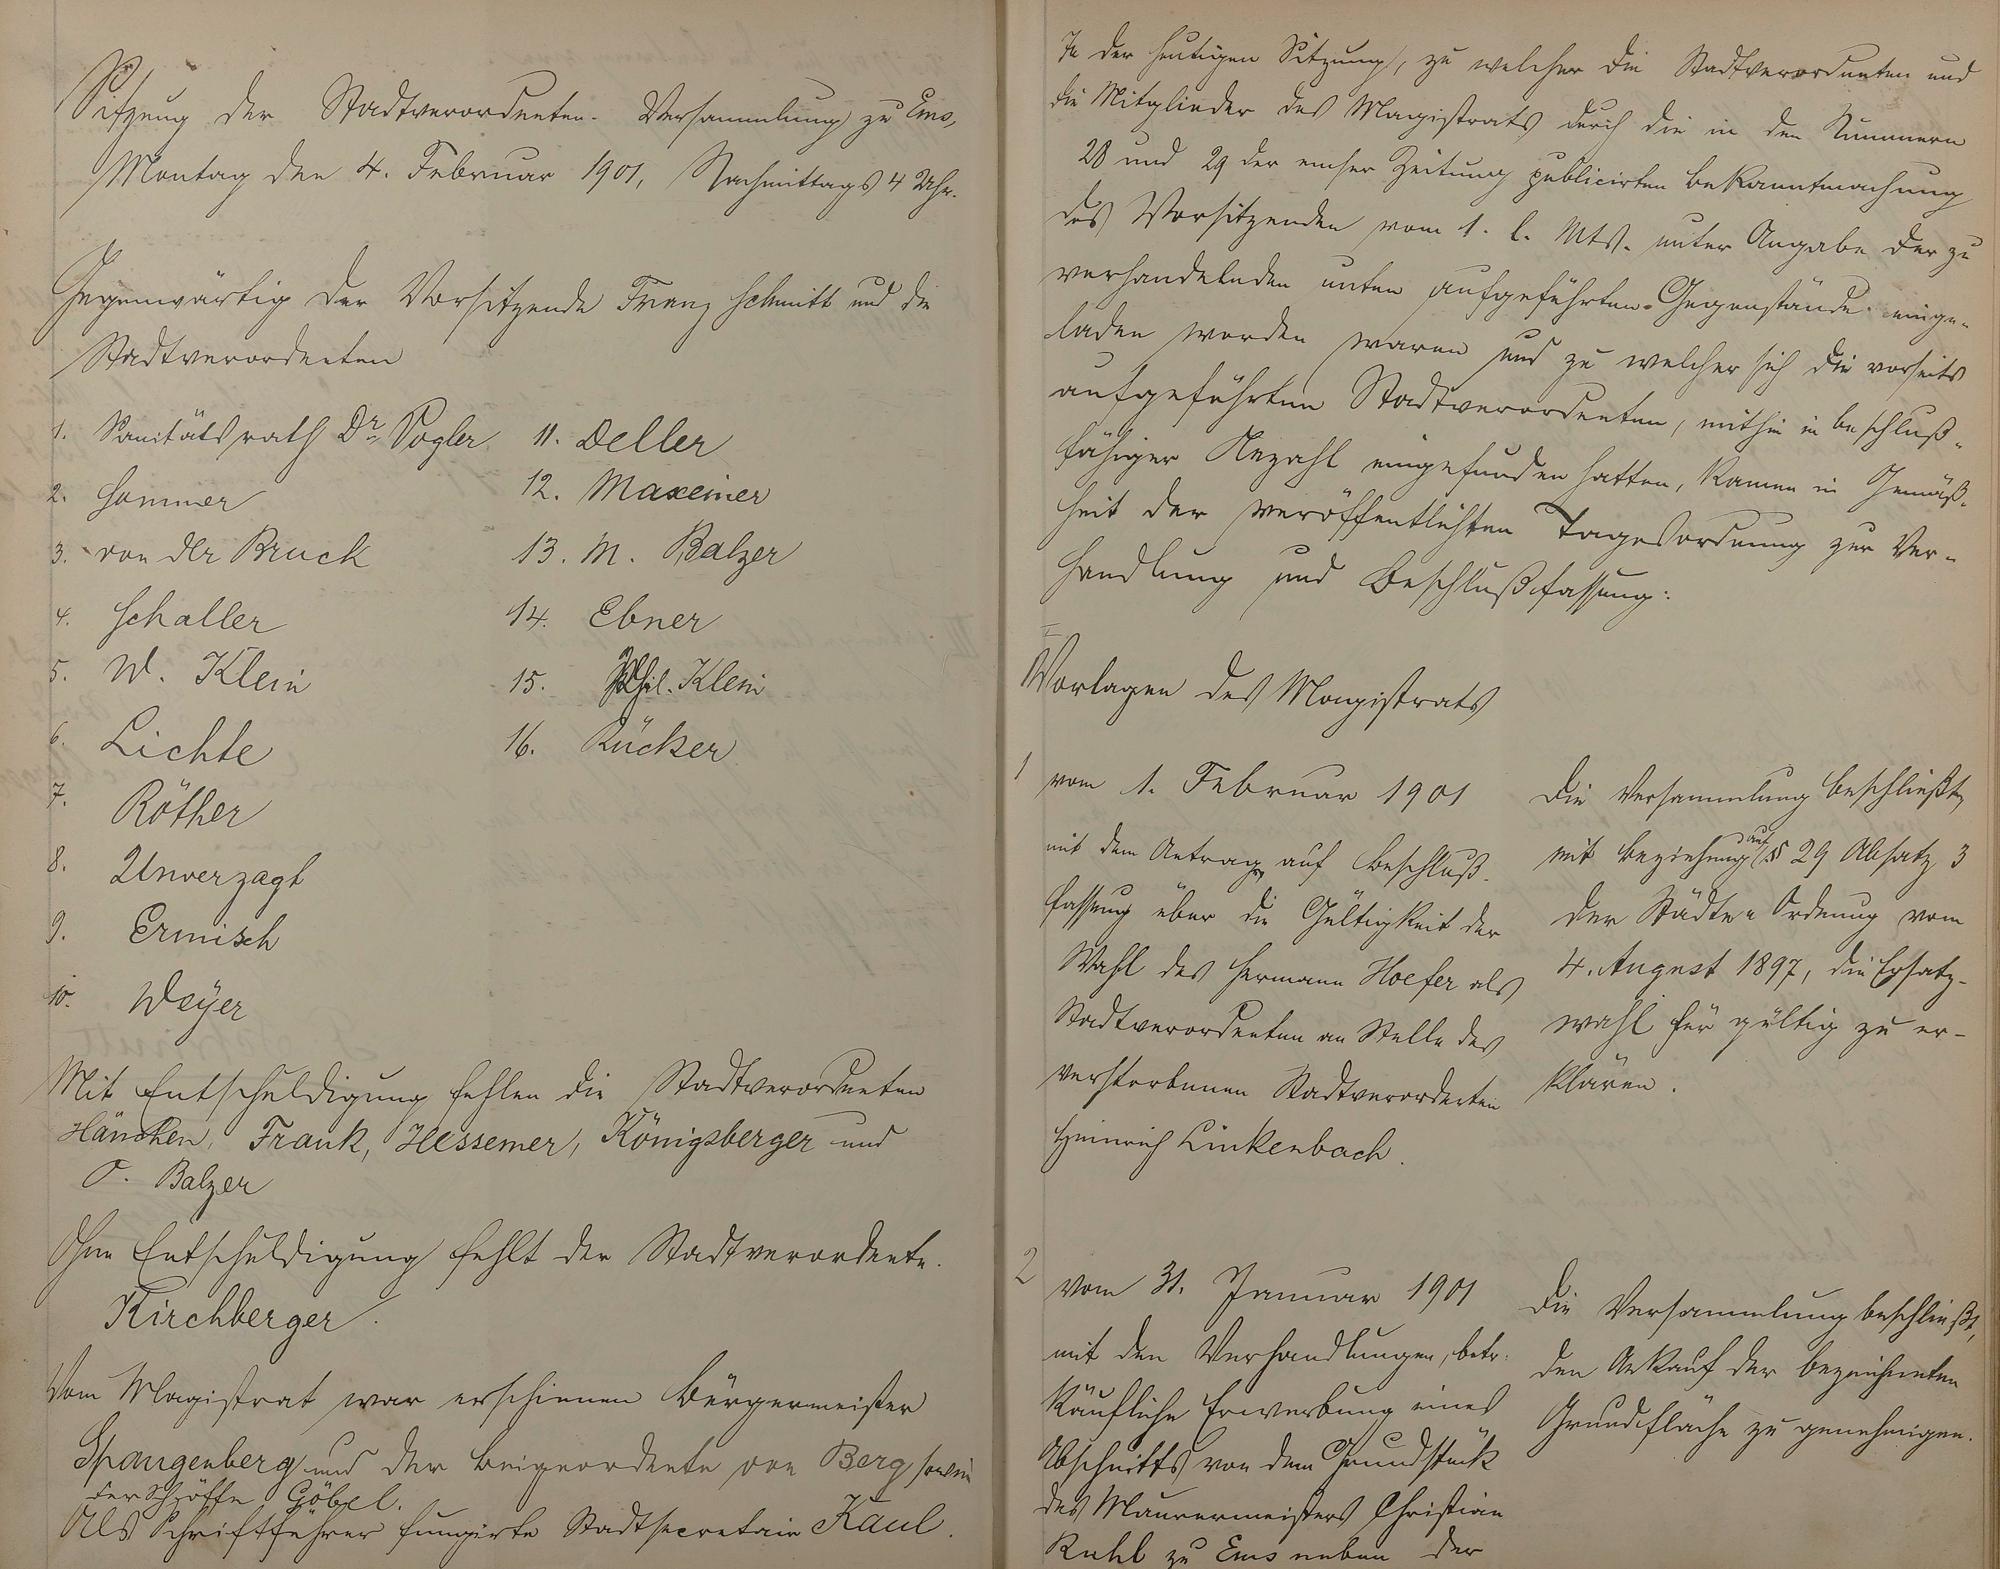 Sitzung der Stadtverordneten-Versammlung zu Ems,
Montag den 4. Februar 1901, Nachmittags 4 Uhr.
Gegenwärtig der Vorsitzende Franz Schmitt und die
Stadtverordneten
1. Sanitätsrath Dr. Vogler
2. Sommer
3. von der Bruck
4. Schaller
5. W. Klein
6. Lichte
7. Röther
8. Unverzagt
9. Ermisch
10. Weyer
11. Deller
12. Maxeiner
13. M. Balzer
14. Ebner
15. Phil. Klein
16. Rücker
Mit Entschuldigung fehlen die Stadtverordneten
Hänchen, Frank, Hessemer, Königsberger und
O. Balzer
Ohne Entschuldigung fehlt der Stadtverordnete
Kirchberger.
Vom Magistrat war erschienen Bürgermeister
Spangenberg und der Beigeordnete von Berg sowie
der Schöffe Göbel.
Als Schriftführer fungirte Stadtsecretair Kaul.
In der heutigen Sitzung, zu welcher die Stadtverordneten und
die Mitglieder des Magistrats durch die in den Nummern
28 und 29 der emser Zeitung publicirten Bekanntmachung
des Vorsitzenden vom 1. l. Mts. unter Angabe der zu
verhandelnden unten aufgeführten Gegenstände einge-
laden worden waren und zu welcher sich die vorseits
aufgeführten Stadtverordneten, mithin in beschluß-
fähiger Anzahl eingefunden hatten, kamen in Gemäß-
heit der veröffentlichten Tagesordnung zur Ver-
handlung und Beschlußfassung:
I
Vorlagen des Magistrats
1 vom 1. Februar 1901
mit dem Antrag auf Beschluß-
fassung über die Gültigkeit der
Wahl des Hermann Hoefer als
Stadtverordneten an Stelle des
verstorbenen Stadtverordneten
Heinrich Linkenbach.
Die Versammlung beschließt,
mit Beziehung auf § 29 Absatz 3
der Städte-Ordnung vom
4. August 1897, die Ersatz-
wahl für gültig zu er-
klären.
2 vom 31. Januar 1901
mit den Verhandlungen, betr.
käufliche Erwerbung eines
Abschnitts von dem Grundstück
des Maurermeisters Christian
Ruhl zu Ems neben der
Die Versammlung beschließt,
den Ankauf der bezeichneten
Grundfläche zu genehmigen.